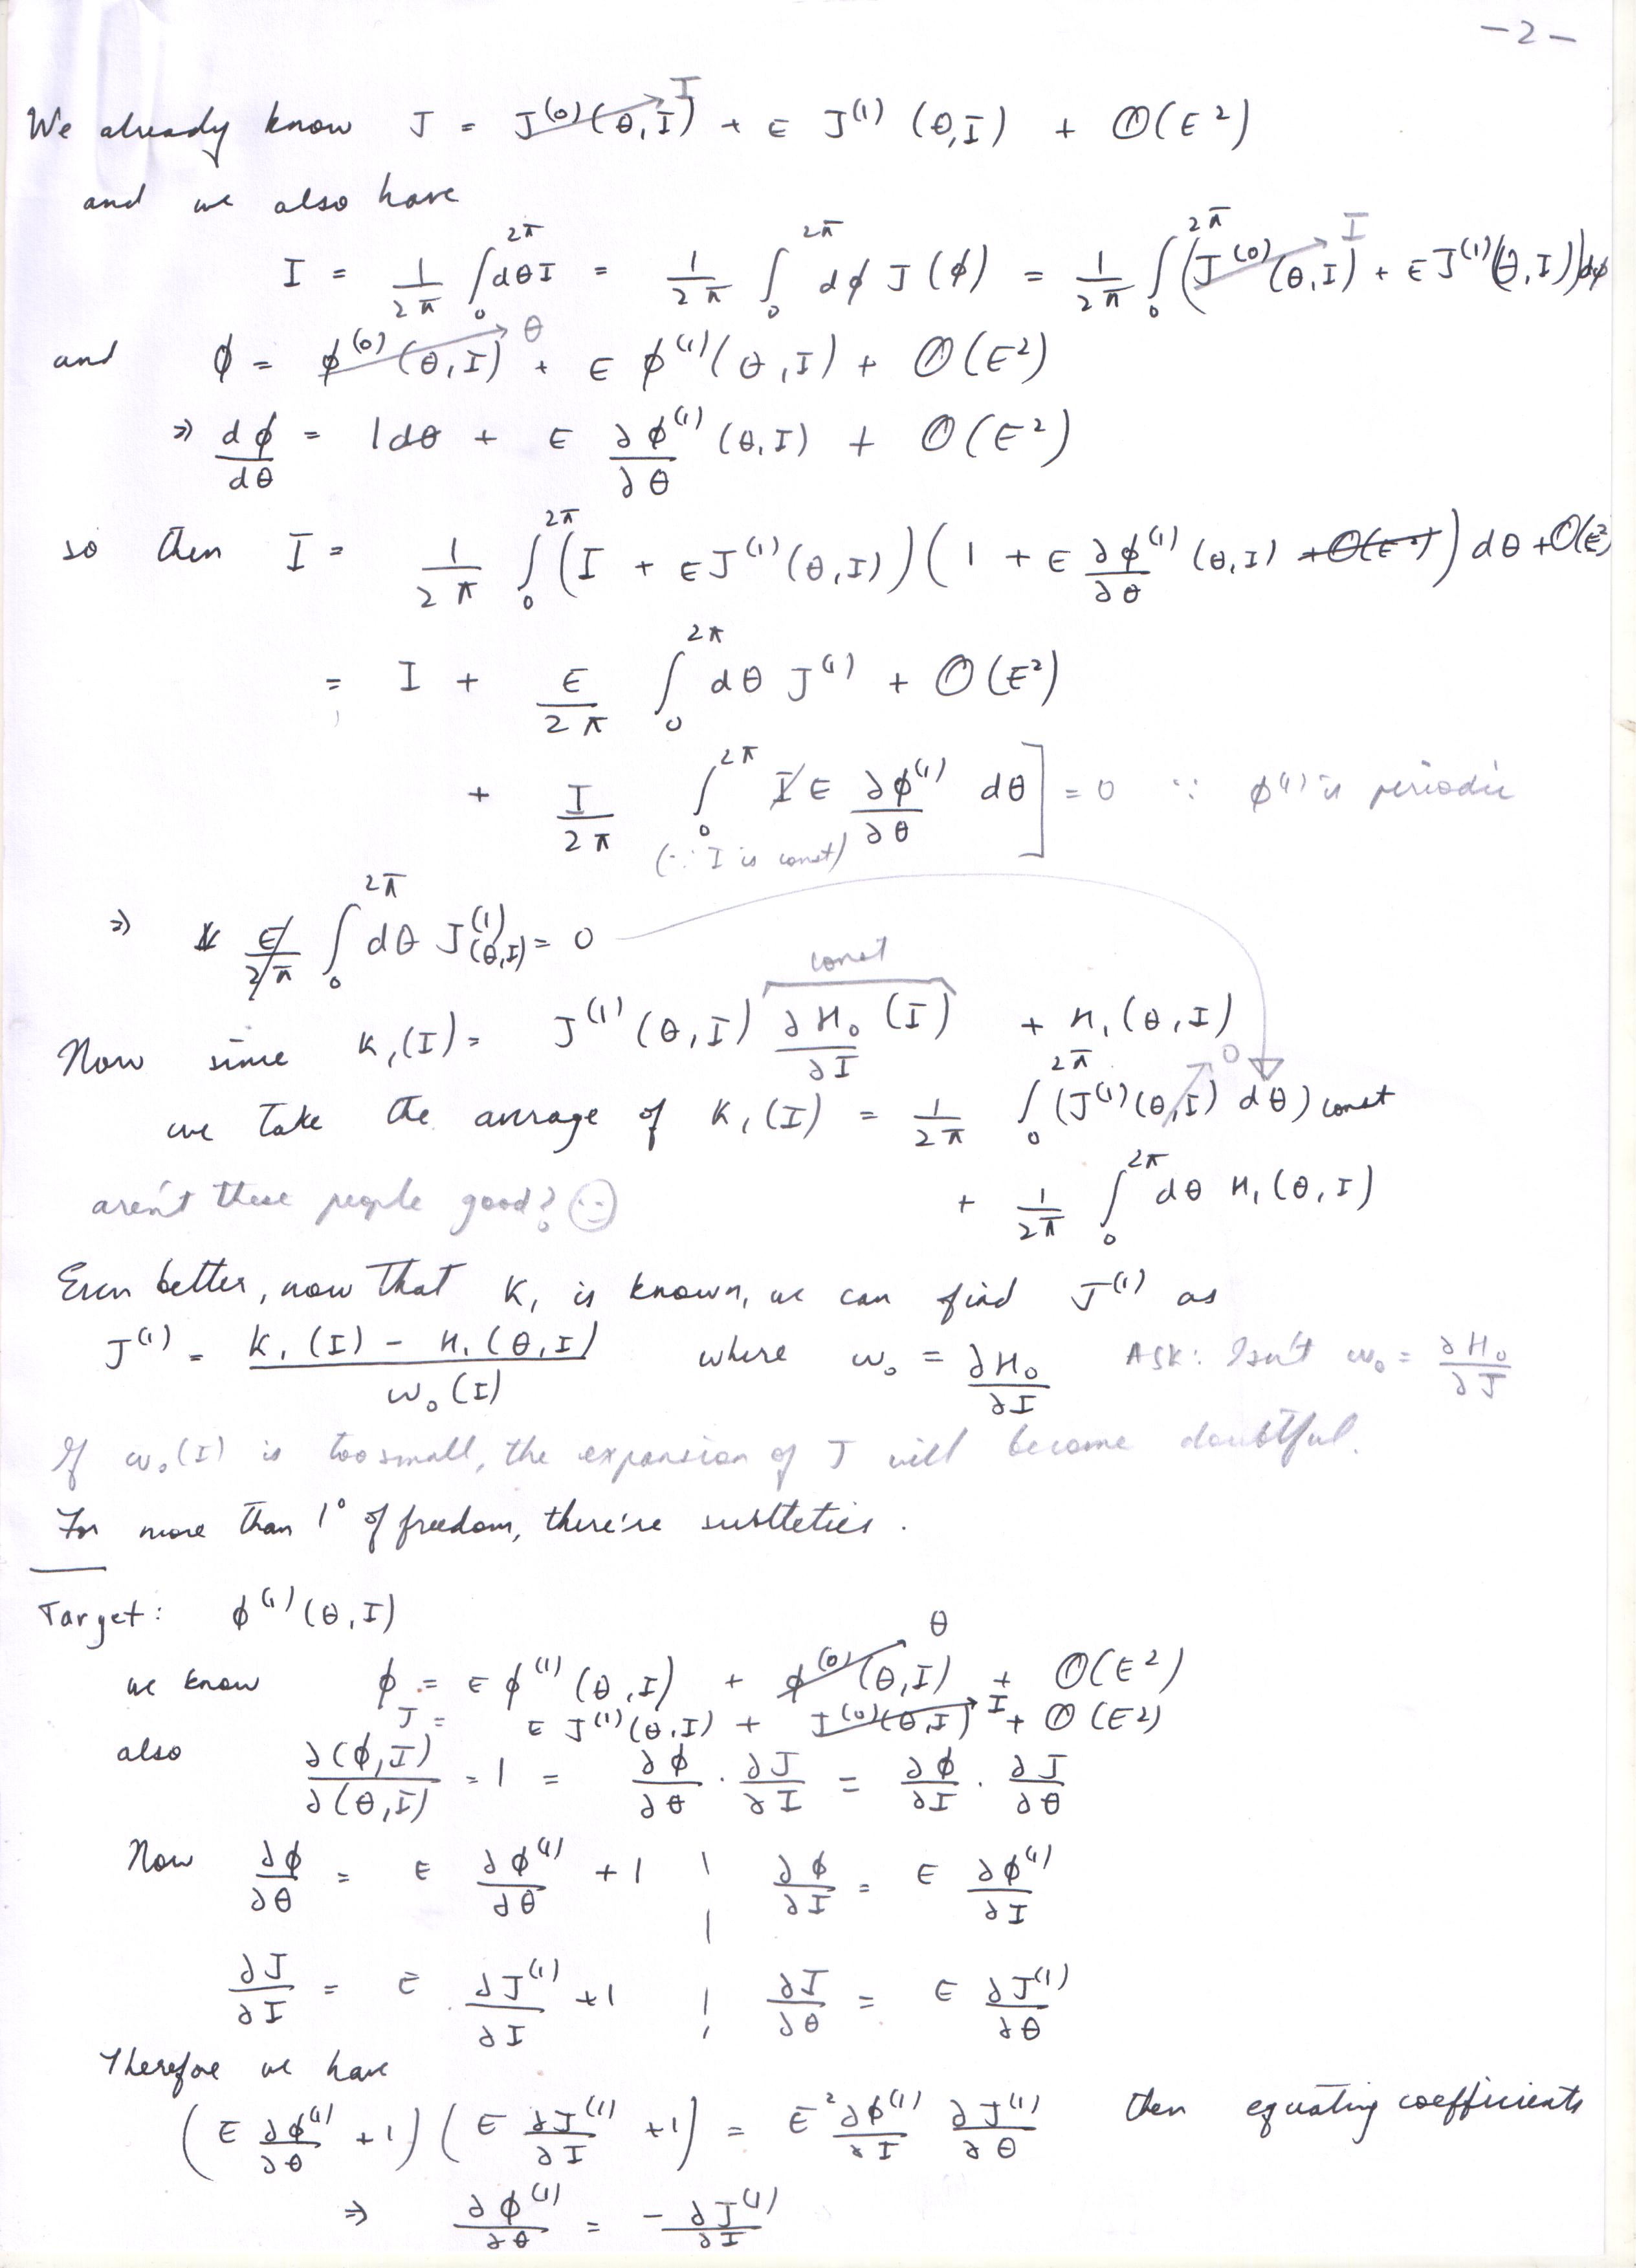 - 2 -
We already know J = J^(0)(θ,I) → I + ϵ J^(1) (θ,I) + O(ϵ²)
and we also have
I = 1/2π ∫_0^2π dθ I = 1/2π ∫_0^2π dφ J(φ) = 1/2π ∫_0^2π (J^(0)(θ,I) → I + ϵ J^(1)(θ,I)) dφ
and φ = φ^(0)(θ,I) → θ + ϵ φ^(1)(θ,I) + O(ϵ²)
⇒ dφ/dθ = 1dθ + ϵ ∂φ^(1)/∂θ (θ,I) + O(ϵ²)
so then I = 1/2π ∫_0^2π (I + ϵJ^(1)(θ,I)) (1 + ϵ ∂φ^(1)/∂θ (θ,I) + O(ϵ²)) dθ + O(ϵ²)
= I + ϵ/2π ∫_0^2π dθ J^(1) + O(ϵ²)
+ I/2π ∫_0^2π I ϵ ∂φ^(1)/∂θ dθ ] = 0 ∵ φ^(1) is periodic
(∵ I is const)
⇒ ϵ/2π ∫_0^2π dθ J^(1)(θ,I) = 0
const
Now since K₁(I) = J^(1)(θ,I) ∂H₀/∂I (I) + H₁(θ,I)
we take the average of K₁(I) = 1/2π ∫_0^2π (J^(1)(θ,I) dθ) → 0 const
aren't these people good? ☺ + 1/2π ∫_0^2π dθ H₁(θ,I)
Even better, now that K₁ is known, we can find J^(1) as
J^(1) = K₁(I) - H₁(θ,I) / ω₀(I) where ω₀ = ∂H₀/∂I ASK: Isn't ω₀ = ∂H₀/∂J
If ω₀(I) is too small, the expansion of J will become doubtful.
For more than 1° of freedom, there're subtleties.
Target: φ^(1)(θ,I)
we know φ = ϵ φ^(1)(θ,I) + φ^(0)(θ,I) → θ + O(ϵ²)
J = ϵ J^(1)(θ,I) + J^(0)(θ,I) → I + O(ϵ²)
also ∂(φ,I)/∂(θ,I) = 1 = ∂φ/∂θ · ∂J/∂I = ∂φ/∂I · ∂J/∂θ
Now ∂φ/∂θ = ϵ ∂φ^(1)/∂θ + 1 | ∂φ/∂I = ϵ ∂φ^(1)/∂I
∂J/∂I = ϵ ∂J^(1)/∂I + 1 | ∂J/∂θ = ϵ ∂J^(1)/∂θ
Therefore we have
(ϵ ∂φ^(1)/∂θ + 1) (ϵ ∂J^(1)/∂I + 1) = ϵ² ∂φ^(1)/∂I ∂J^(1)/∂θ then equating coefficients
⇒ ∂φ^(1)/∂θ = - ∂J^(1)/∂I